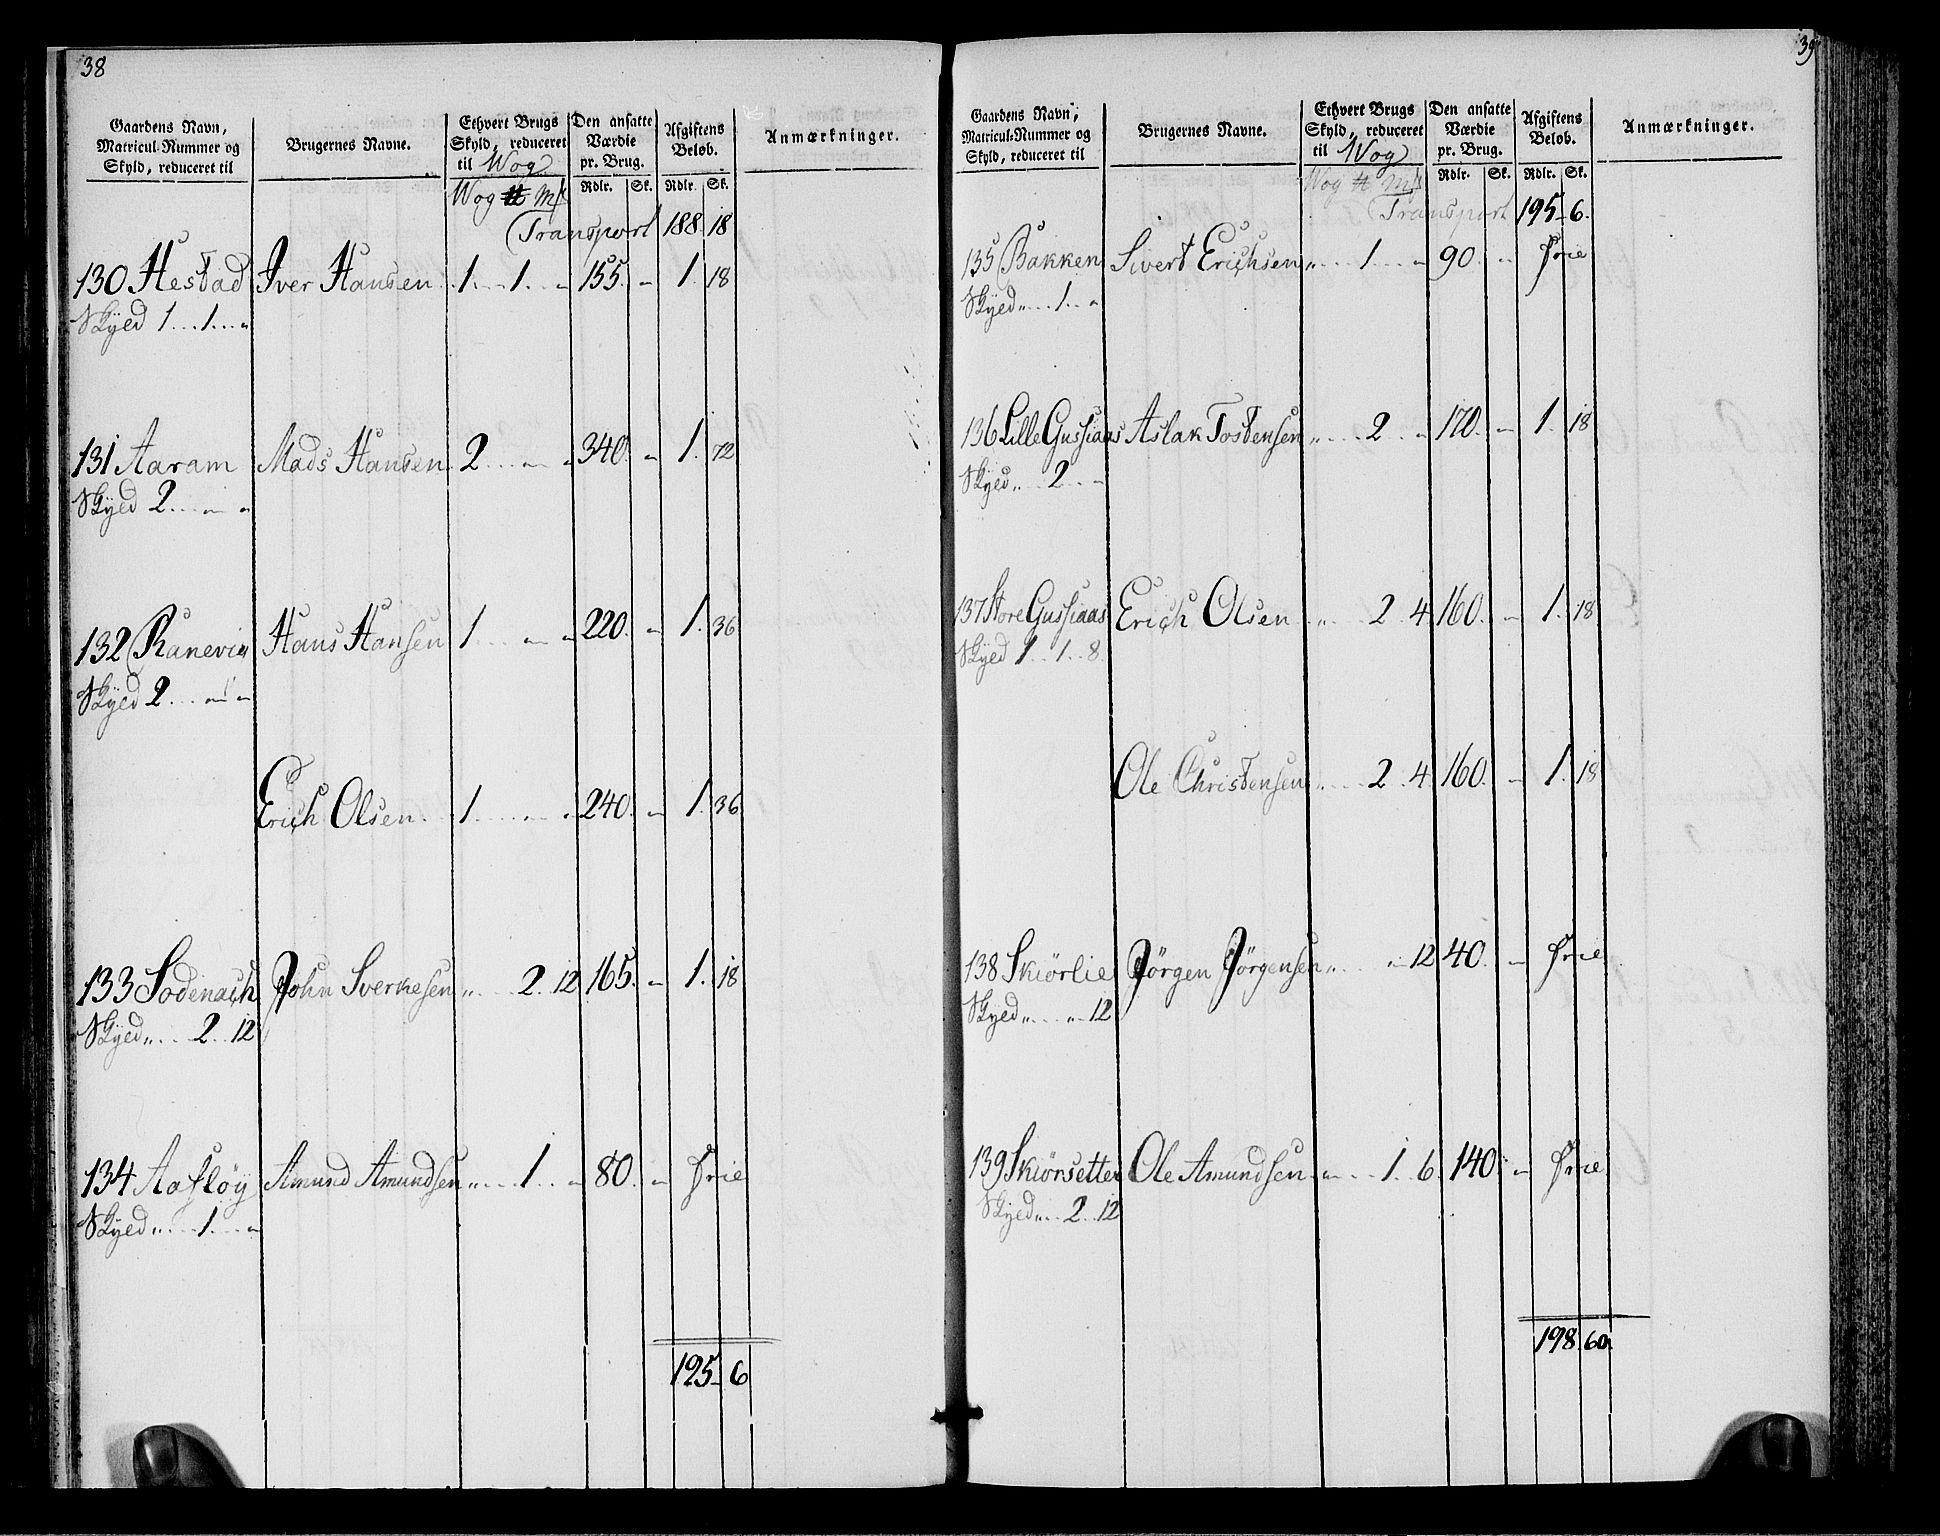 38
Gaardens Navn, Matricul-Nummer og Skyld, reduceret til
Brugernes Navne.
Ethvert Brugs Skyld, reduceret til Wog
Den ansatte Værdie pr. Brug.
Afgiftens Beløb.
Anmærkninger.
Wog ℔ Mk Rdlr. Sk. Rdlr. Sk.
Transport 188. 18
130 Hestad Iver Hansen 1 . . 1 . „ 155. „ 1. 18
Skyed 1 . . . 1 . . . „
131 Aaram Mads Hansen 2 . . . „ . „ 340. „ 1. 72
Skyed 2 . . . „ . „
132 Ranevig Hans Hansen 1 . . . „ . „ 220. „ 1. 36
Skyed 2 . . . „ . „
Erich Olsen 1 . . . „ . „ 240. „ 1. 36
133 Sodenach John Sverkesen „ . . . 2. 12 165. „ 1. 18
Skyed „ . . . 2 . . 12
134 Aafløy Amund Amundsen „ . . . 1 . . „ 80. „ Frie
Skyed „ . . . 1 . . . „
195. 6
39
Gaardens Navn, Matricul-Nummer og Skyld, reduceret til
Brugernes Navne.
Ethvert Brugs Skyld, reduceret til Wog
Den ansatte Værdie pr. Brug.
Afgiftens Beløb.
Anmærkninger.
Wog ℔ Mk Rdlr. Sk. Rdlr. Sk.
Transport 195. 6.
135 Bakken Sivert Erichsen „ . . . 1 . . . „ 90. „ Frie
Skyed „ . . . 1 . . „
136 Lille Gussiaas Aslak Tostensen „ . . . 2 . . „ 170. „ 1. 18
Skyed „ . . 2 . . „
137 Store Gussiaas Erich Olsen „ . . . 2 . 4 160. „ 1. 18
Skyed 1 . . 1 . . 8.
Ole Christensen „ . . . 2 . 4 160. „ 1. 18
138 Skiörlie Jörgen Jörgensen „ . . . „ . 12 40. „ Frie
Skyed „ . . . „ . 12
139 Skiörsetter Ole Amundsen „ . . . 1 . 6 140 „ Frie
Skyed „ . . 2 . . 12
198. 60.